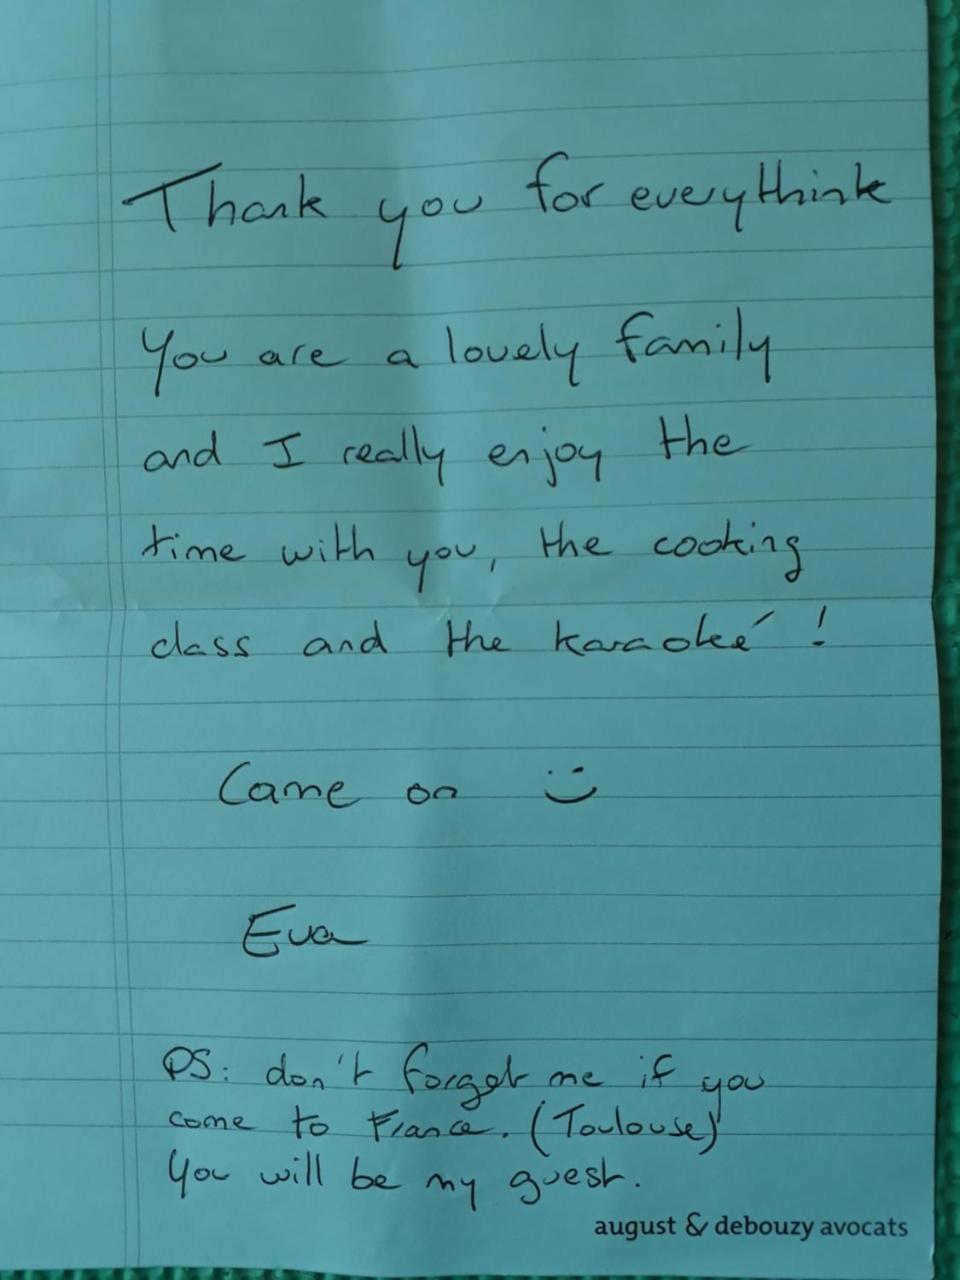 Thank you for everythink
You are a lovely family
and I really enjoy the
time with you, the cooking
class and the karaoké !
Came on :)
Eva
PS: don't forget me if you
come to France. (Toulouse)
You will be my guest.
august & debouzy avocats